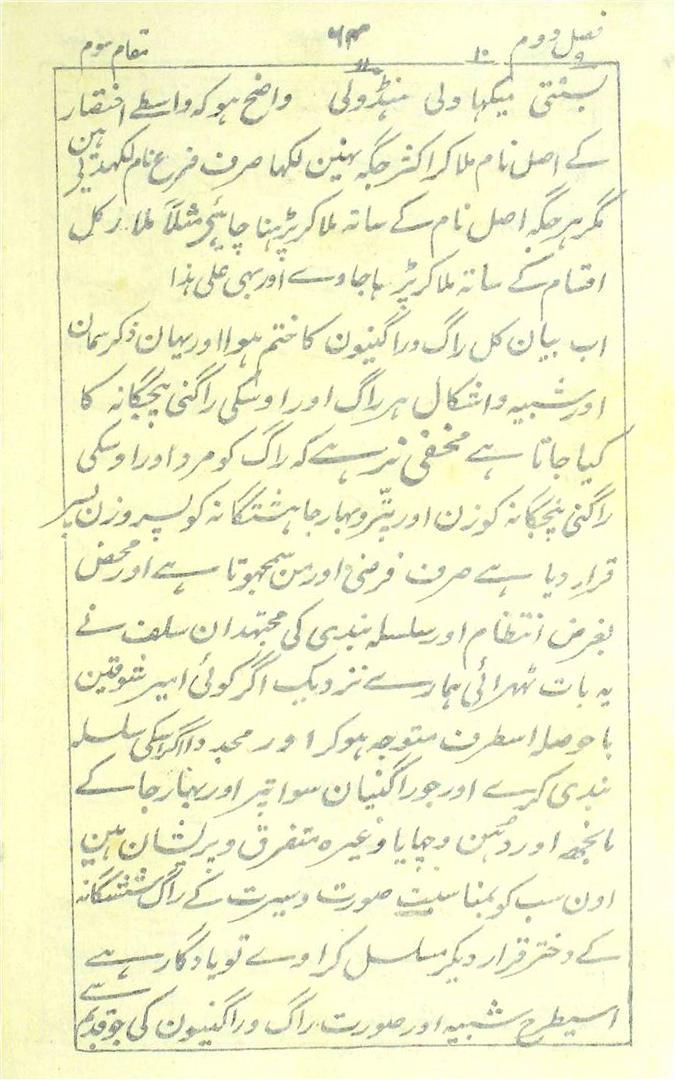 فصل دوم ۶۳ مقام سوم
۹ ۱۰ ۱۱
بسنتی میگہاولی ہنڈولی واضح ہو کہ واسطے افتقار
کے اصل نام ملا کر اکثر جگہ نہین لکہا صرف فرع نام لکہدیئے ہین
مگر ہر جگہ اصل نام کے ساتہ ملا کر پڑہنا چاہیئے مثلاً ملار کل
اقسام کے ساتہ ملا کر پڑہا جاوے اور یہی علی ہذا
اب بیان کل راگ وراگنیون کا ختم ہوا اور یہان ذکر سمان
اور شبیہ واشکال ہر راگ اور اوسکی راگنی پنجگانہ کا
کیا جاتا ہے مخفی نرہے کہ راگ کو مرد اور اوسکی
راگنی پنجگانہ کو زن اور پتّر وبہارجا ہشتگانہ کو پسر وزن پسر
قرار دیا ہے صرف فرضی اور من سمجہوتا ہے اور محض
بغرض انتظام اور سلسلہ بندی کی مجتہدان سلف نے
یہ بات ٹہرائی ہمارے نزدیک اگر کوئی امیر شوقین
باحوصلہ اسطرف متوجہ ہو کر اور مجدداً اگر اسکی سلسلہ
بندی کرے اور جو راگنیان سوا پتر اور بہارجا کے
بانجھ اور دُلہن وچہایا وغیرہ متفرق وپریشان ہین
اون سب کو بمناسبت صورت وسیرت کے راگ ششگانہ
کے دختر قرار دیکر مسلسل کراوے تو یادگار رہے
اسیطرح شبیہ اور صورت راگ وراگنیون کی جو قدیم سے